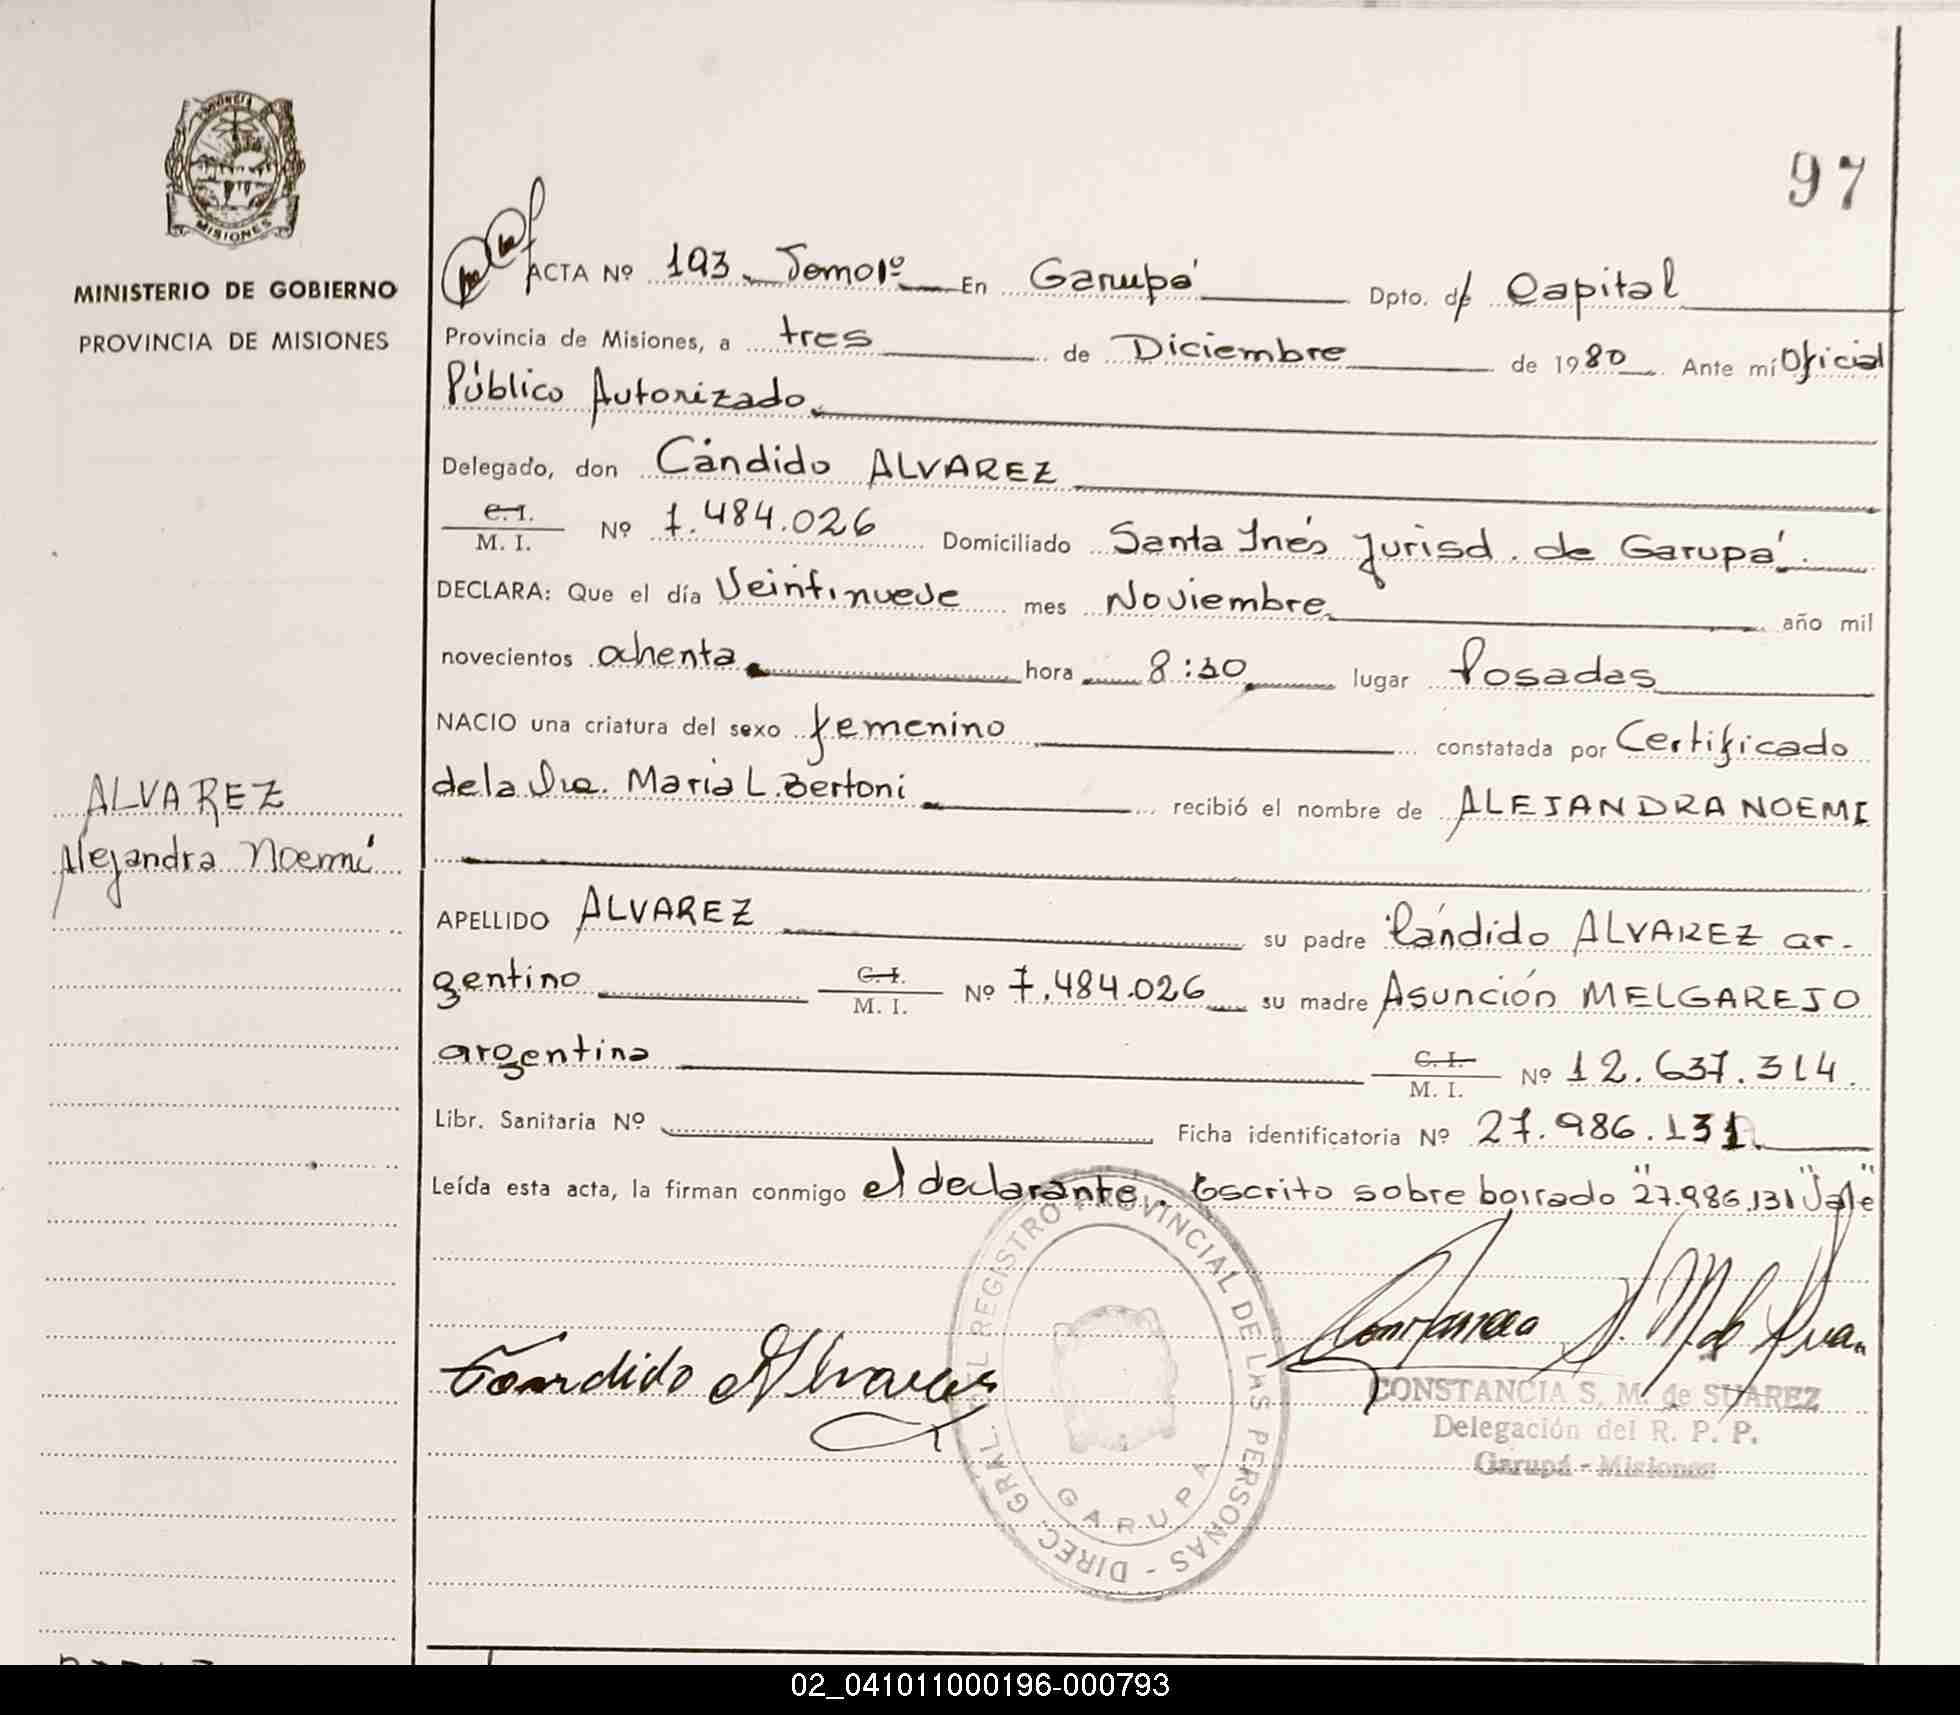 97
PROVINCIA
MISIONES
MINISTERIO DE GOBIERNO
PROVINCIA DE MISIONES
ACTA Nº 193 Tomo 1º En Garupá Dpto. de Capital
Provincia de Misiones, a tres de Diciembre de 1980 Ante mí Oficial
Público Autorizado
Delegado, don Cándido ALVAREZ
C. I.
M. I. Nº 7.484.026 Domiciliado Santa Inés Jurisd. de Garupá.
DECLARA: Que el día Veintinueve mes Noviembre año mil
novecientos ochenta hora 8:30 lugar Posadas
NACIO una criatura del sexo femenino constatada por Certificado
de la Dra. Maria L. Bertoni recibió el nombre de ALEJANDRA NOEMI
ALVAREZ
Alejandra Noemí
APELLIDO ALVAREZ su padre Cándido ALVAREZ ar-
gentino C. I. M. I. Nº 7.484.026 su madre Asunción MELGAREJO
argentina C. I. M. I. Nº 12.637.314.
Libr. Sanitaria Nº Ficha identificatoria Nº 27.986.131.
Leída esta acta, la firman conmigo el declarante. Escrito sobre borrado "27.986.131" Vale
Candido Alvarez
DIREC. GRAL. DEL REGISTRO PROVINCIAL DE LAS PERSONAS -
GARUPA
CONSTANCIA S. M. de SUAREZ
Delegación del R. P. P.
Garupá - Misiones
02_041011000196-000793